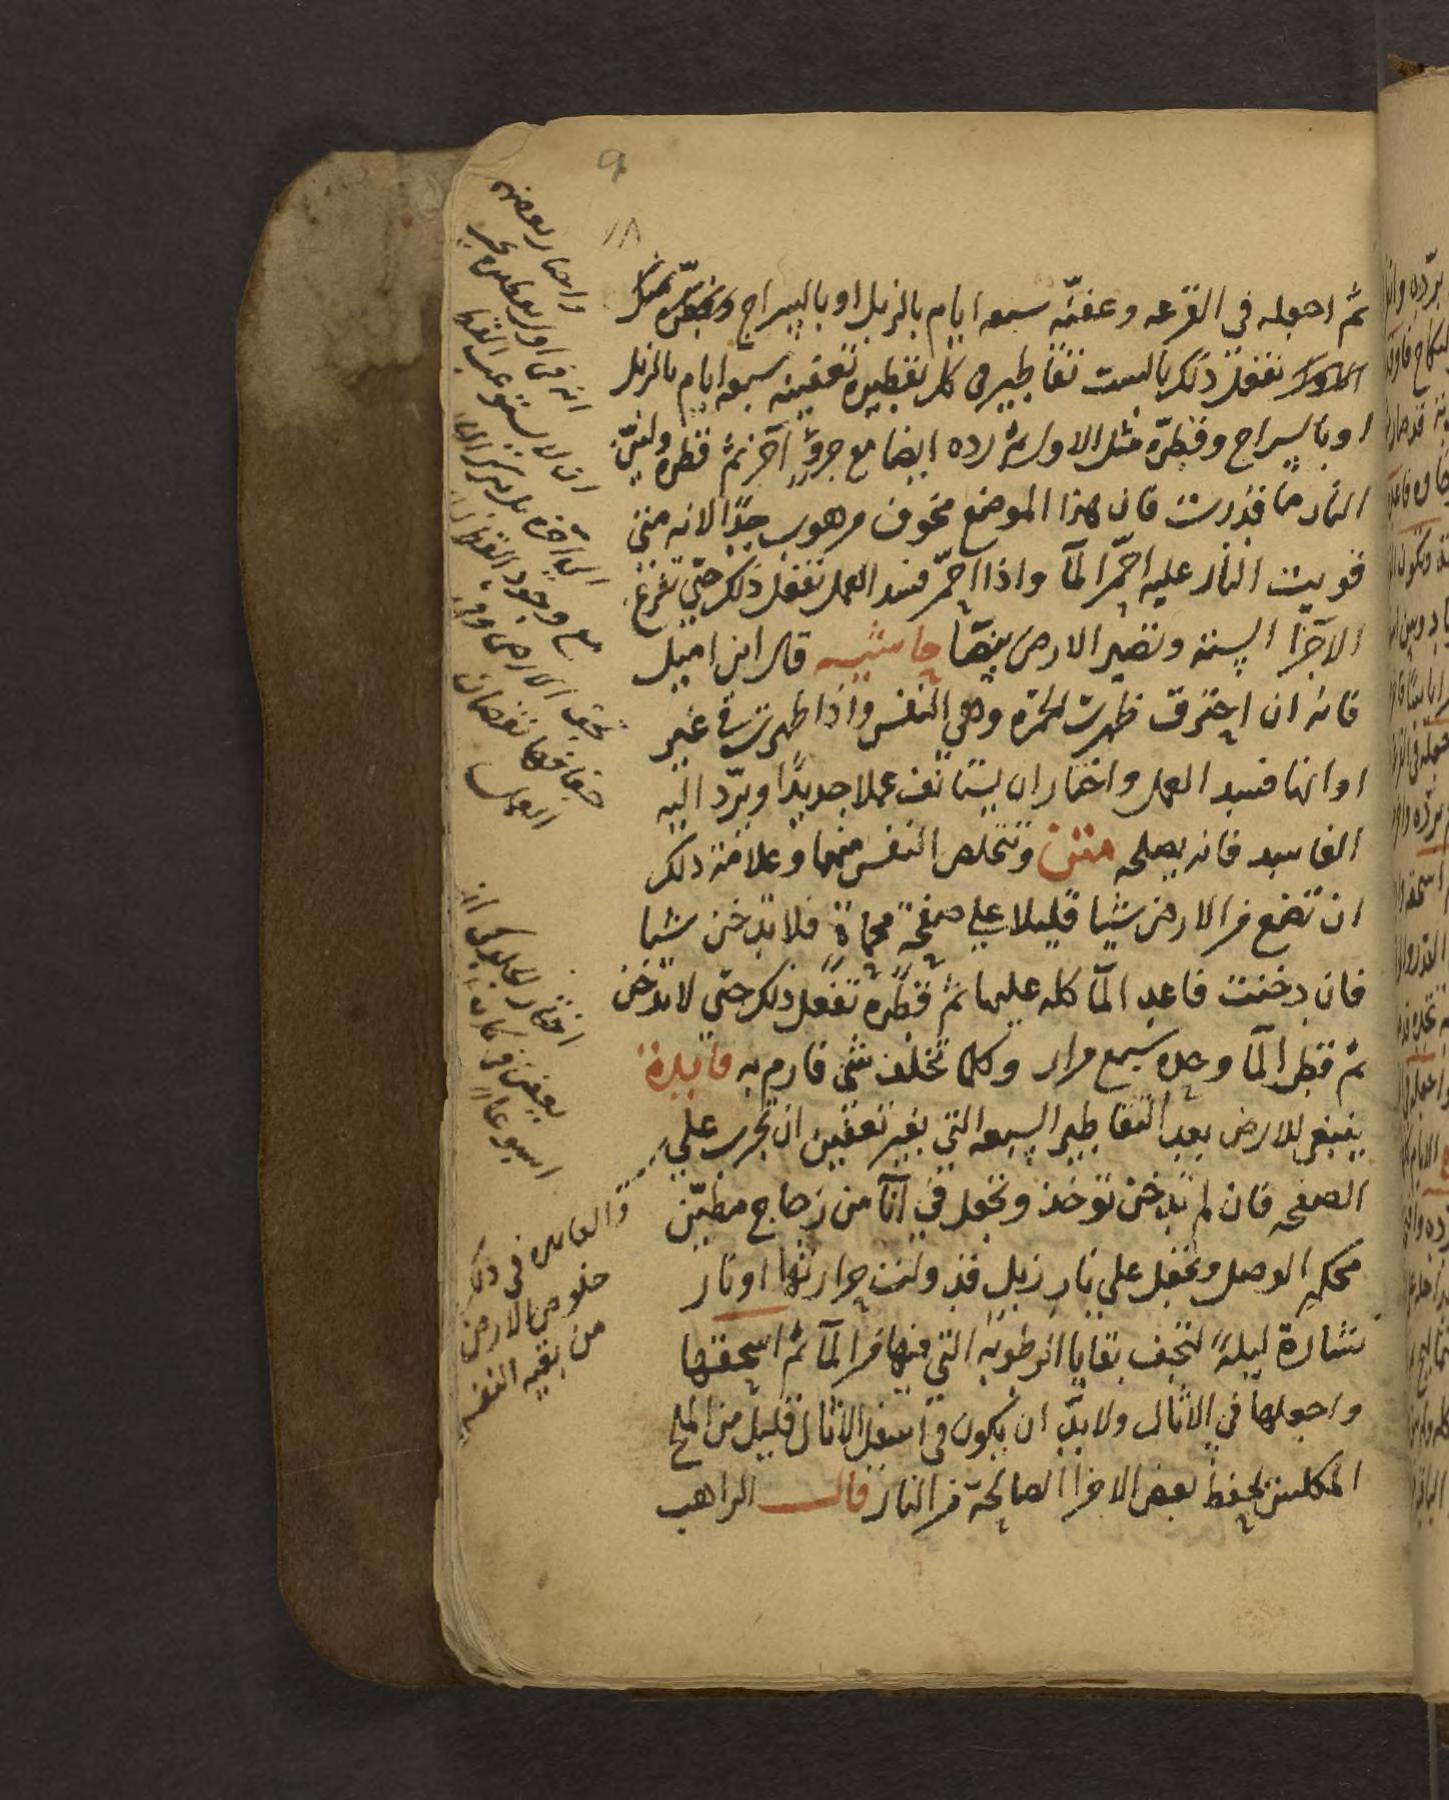 ٩
١٨
ثم اجعله في القرعه وعفنه سبعه ايام بالزبل او بالسراج
تفعل ذلك بالست تقاطير في كل تقطيره تعفينه سبعه ايام بالزبل
او بالسراج وقطره مثل الاول ثم رده ايضا مع جزوٍ آخر ثم قطره ولين
النار ما قدرت فان هذا الموضع مخوف مرهوب جدا لانه متى
قويت النار عليه احمر المآ واذا احمر فسد العمل تفعل ذلك حتى تفرغ
الاجزآ الستة وتصير الارض بيضآ حاشيه قال ابن اميل
فانه ان احترق ظهرت الحمرة وهي النفس واذا ظهرت في غير
اوانها فسد العمل واختار ان يستانف عملا جديدا ويرد اليه
الفاسد فانه يصلحه متن وتتخلص النفس منها وعلامة ذلك
ان تضع من الارض شيا قليلا على صفيحة محماةٍ فلا تدخن شيا
فان دخنت فاعد المآ كله عليها ثم قطره تفعل ذلك حتى لا تدخن
ثم قطر المآ وحده سبع مرار وكلما تخلف شي فارم به فايدة
ينبغي للارض بعد التقاطير السبعه التي بغير تعفين ان تجرب على
الصفحه فان لم تدخن توخذ وتجعل في انآ من زجاج مطين
محكم الوصل وتجعل على نار زبل قد ولت حرارتها او نار
نشارة ليلةً لتجف بقايا الرطوبه التي فيها من المآ ثم اسحقها
واجعلها في الاثال ولا بد ان يكون في اسفل الاثال قليل من الملح
المكلس ليحفظ بعض الاجزا الصالحة من النار قال الراهب
واختار بعضهم
انه في اول تقطيره
ان لا يستوعب القطر
الى آخره بل يترك
مع وجود القطر
تجف الارض
جفافها نقصان
العمل
اختار الجلدكي ان
يعفن في كل
اسبوعا
والفايده في ذلك
خلوص الارض
من بقية النفس